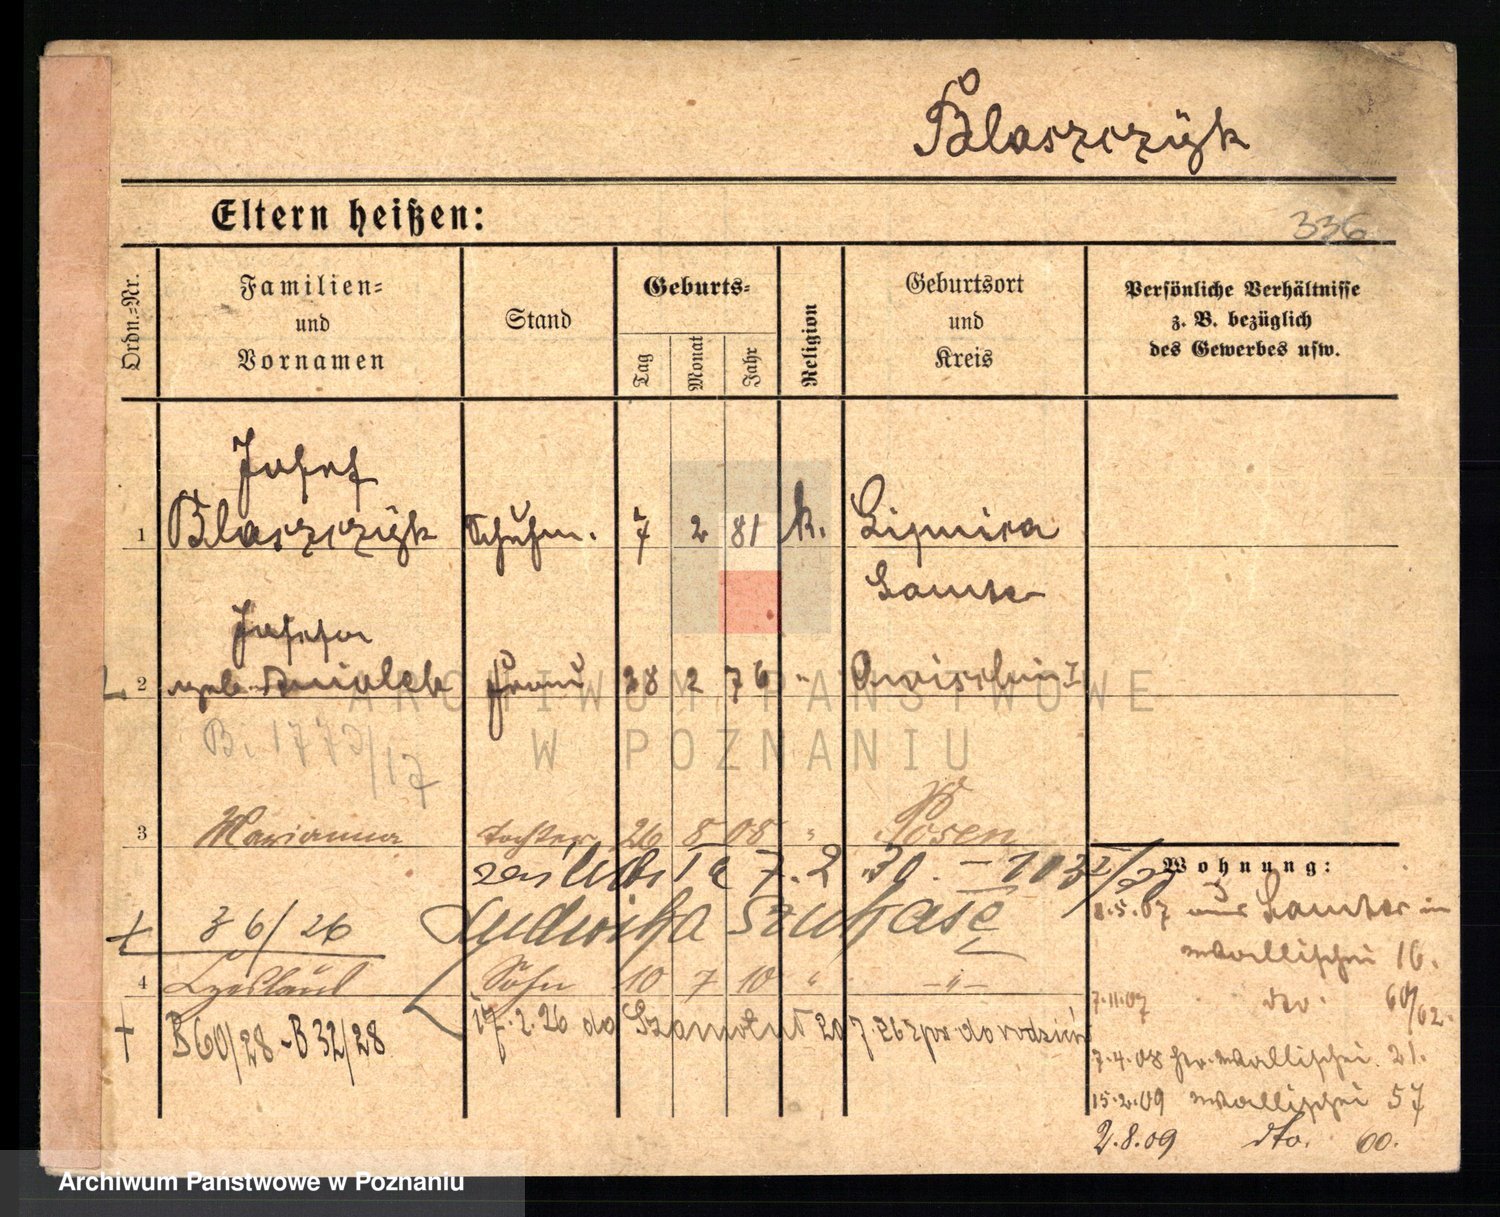 Blaszczÿk
Eltern heißen:
336
Ordn.=Nr.
Familien=
und
Vornamen
Stand
Geburts=
Tag
Monat
Jahr
Religion
Geburtsort
und
Kreis
Persönliche Verhältnisse
z. B. bezüglich
des Gewerbes usw.
Josef
1 Blaszczÿk Schuhm. 7 2 81 k. Lipnica
Samter
Josefa
2 geb. Frau 28 2 76 "
ARCHIWUM PAŃSTWOWE
W POZNANIU
B. 1773/17
3 Marianna Tochter 26 8 08 " Posen
7. 2. 30. -
Wohnung:
8.5.07 aus Samter in
Wallischei 16.
36/26 Ludwika
4 Sohn 10 7 10 " -"-
7.11.07 dto. 60/62.
B60/28 - B32/28 17.2.26 do Szamotuł 20 7.26 do rodziców
7.4.08 Wallischei 21.
15.2.09 Wallischei 57
2.8.09 dto. 60.
Archiwum Państwowe w Poznaniu